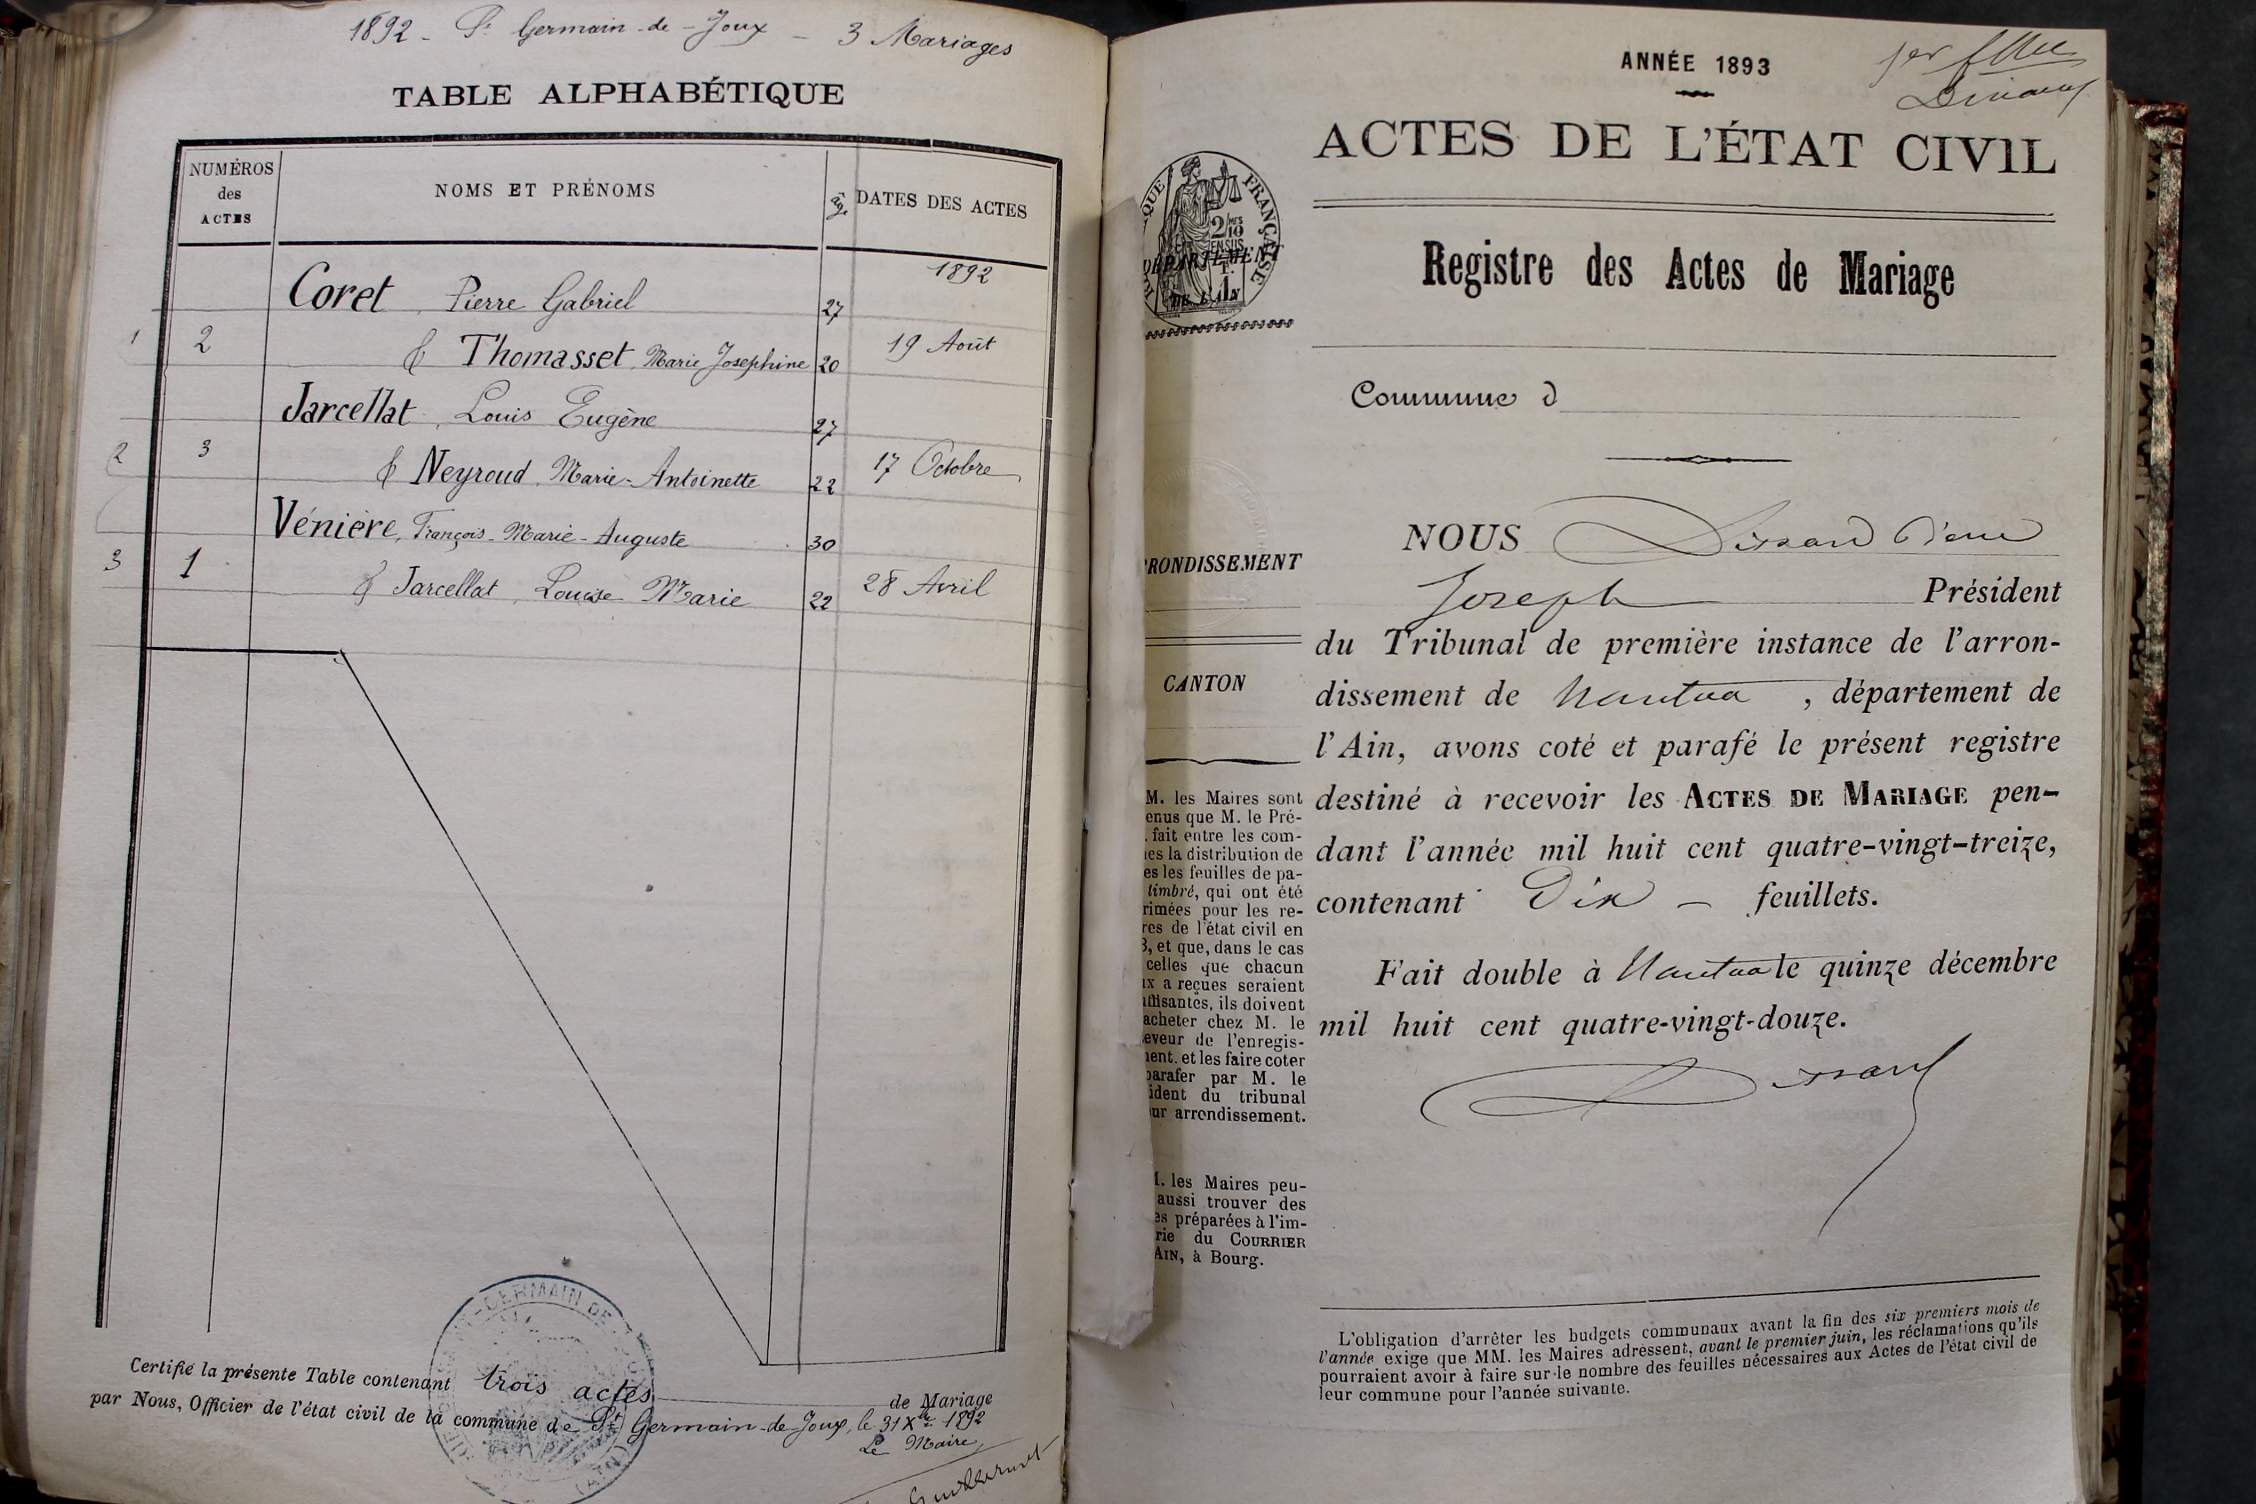 1892 - St Germain-de-Joux - 3 Mariages
TABLE ALPHABÉTIQUE
NUMÉROS des ACTES
NOMS ET PRÉNOMS
âge
DATES DES ACTES
1892
Coret, Pierre Gabriel 27
1 2 & Thomasset, Marie Josephine 20 19 Août
Jarcellat, Louis Eugène 27
2 3 & Neyroud, Marie-Antoinette 22 17 Octobre
Vénière, François-Marie-Auguste 30
3 1 & Jarcellat, Louise Marie 22 28 Avril
Certifié la présente Table contenant trois actes de Mariage
par Nous, Officier de l'état civil de la commune de St Germain-de-Joux, le 31 Xbre 1892
Le Maire
ANNÉE 1893
1er
ACTES DE L'ÉTAT CIVIL
FRANÇAISE
DÉPARTEMENT
DE L'AIN
Registre des Actes de Mariage
Commune d
RONDISSEMENT
CANTON
NOUS
Joseph Président
du Tribunal de première instance de l'arron-
dissement de Nantua, département de
l'Ain, avons coté et parafé le présent registre
destiné à recevoir les ACTES DE MARIAGE pen-
dant l'année mil huit cent quatre-vingt-treize,
contenant Dix - feuillets.
Fait double à Nantua le quinze décembre
mil huit cent quatre-vingt-douze.
M. les Maires sont
enus que M. le Pré-
fait entre les com-
es la distribution de
es les feuilles de pa-
timbré, qui ont été
rimées pour les re-
res de l'état civil en
3, et que, dans le cas
celles que chacun
x a reçues seraient
ffisantes, ils doivent
acheter chez M. le
eveur de l'enregis-
ment. et les faire coter
parafer par M. le
ident du tribunal
ur arrondissement.
les Maires peu-
aussi trouver des
es préparées à l'im-
rie du COURRIER
AIN, à Bourg.
L'obligation d'arrêter les budgets communaux avant la fin des six premiers mois de
l'année exige que MM. les Maires adressent, avant le premier juin, les réclamations qu'ils
pourraient avoir à faire sur le nombre des feuilles nécessaires aux Actes de l'état civil de
leur commune pour l'année suivante.